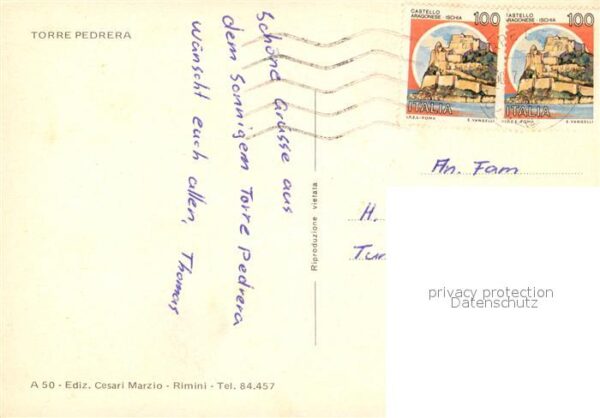 TORRE PEDRERA
Schöne Grüsse aus
dem Sonnigem Torre Pedrera
wünscht euch allen, Thomas
Riproduzione vietata
CASTELLO
ARAGONESE ISCHIA
100
ITALIA
I.P.Z.S.-ROMA
E. VANGELLI
CASTELLO
ARAGONESE ISCHIA
100
ITALIA
I.P.Z.S.-ROMA
E. VANGELLI
An. Fam
H.
Tur
privacy protection
Datenschutz
A 50 - Ediz. Cesari Marzio - Rimini - Tel. 84.457